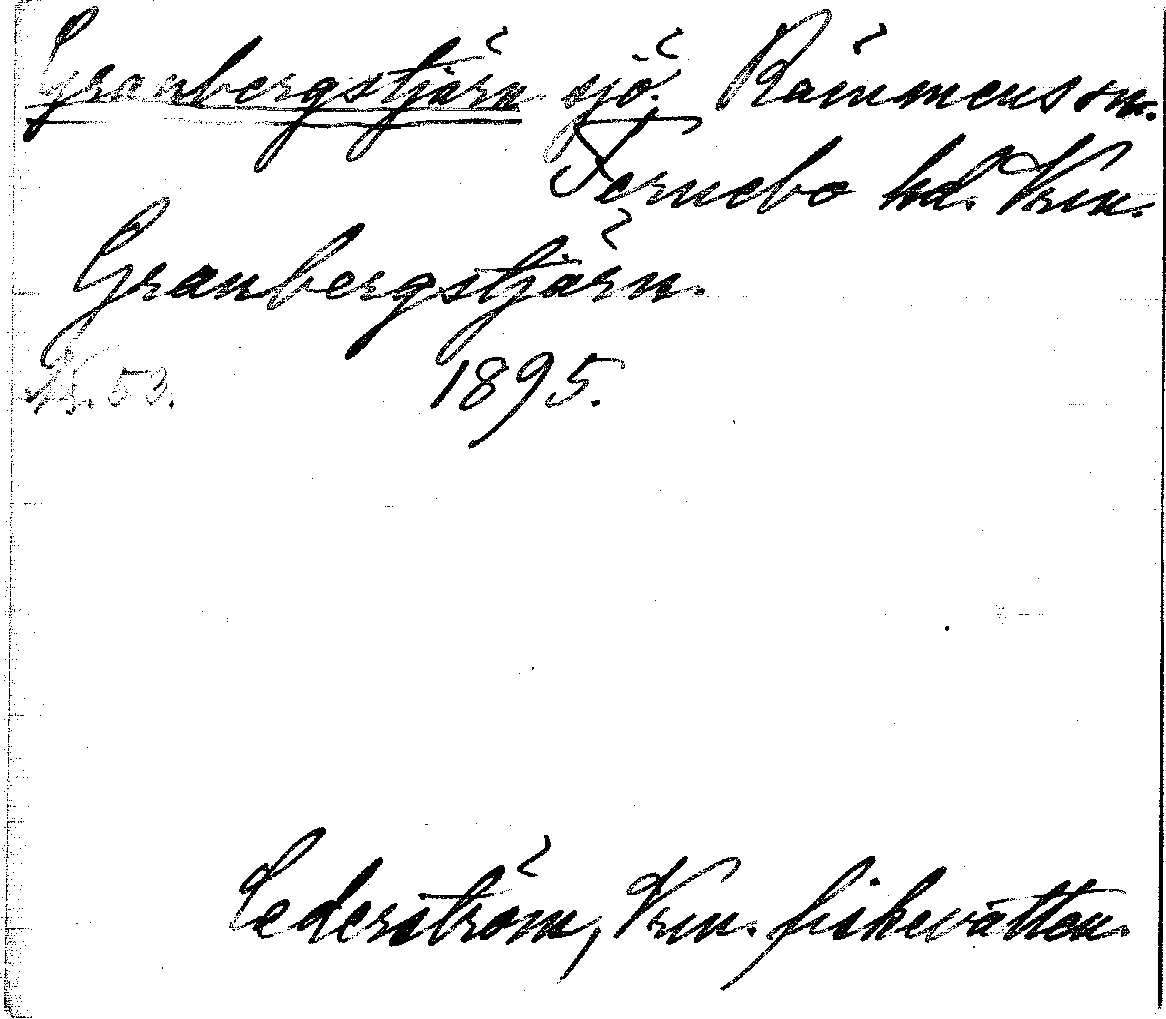 Granbergstjärn sjö. Rämmens sn.
Fernebo hd. Vrm.
Granbergstjärn.
N:r. 53. 1895.
Cederström, Vrm. fiskevatten.